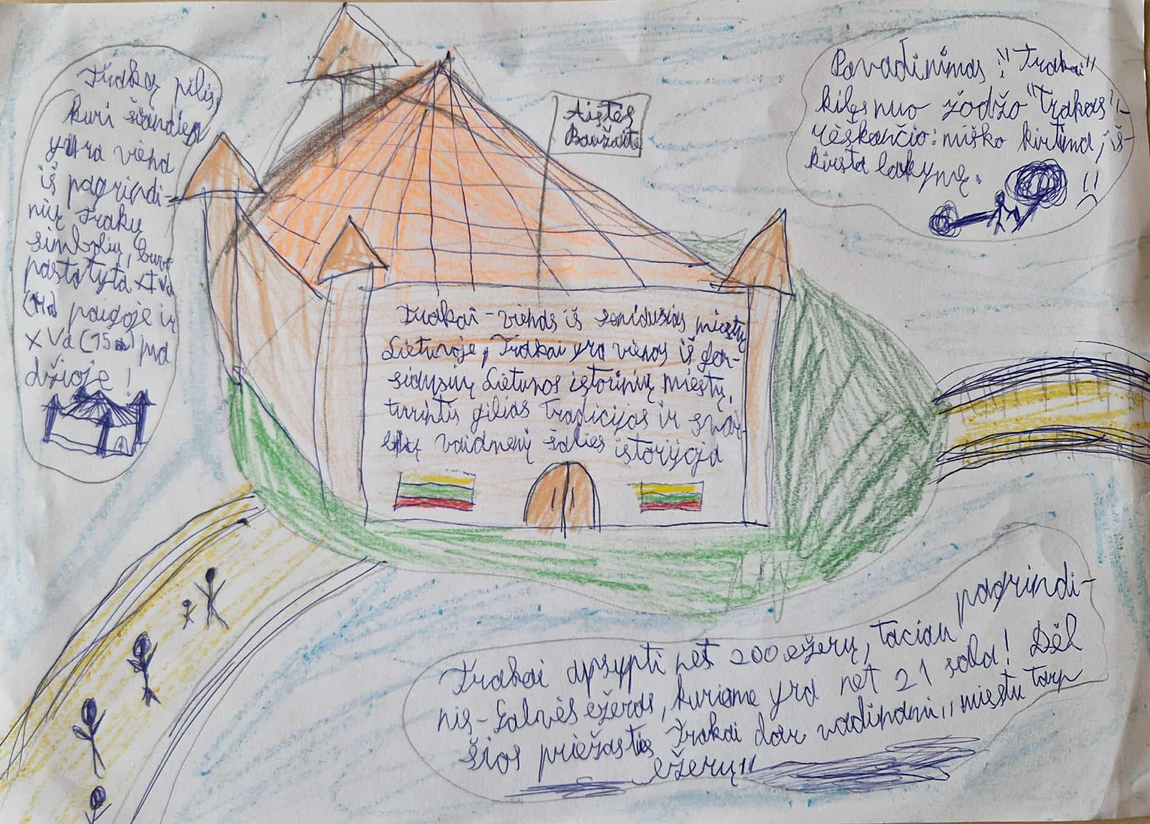 Trakų pilis,
kuri šiandien
yra viena
iš pagrindi-
nių Trakų
simbolių, buvo
pastatyta XIVa
(14a) paigoje ir
XVa (15a) pra
džioje!
Aistės
Povadinimas "Trakai"
kilęs nuo žodžo "Trakas"-
rėškančio: miško kirtimą, iš-
kirsta laukymę.
!!
Trakai - vienas iš seniausias miestų
Lietuvoje, Trakai yra vienas iš se-
siausių Lietuvos istorinių miestų,
turintis gilias tradicijas ir svar-
bų vaidmenį šalies istorijoja
Trakai apsypti net 200 ežerų, tačiau pagrindi-
nis - Galvės ežeras, kuriame yra net 21 sala! Dėl
šios priežasties Trakai dar vadinami ,, miestu tarp
ežerų"